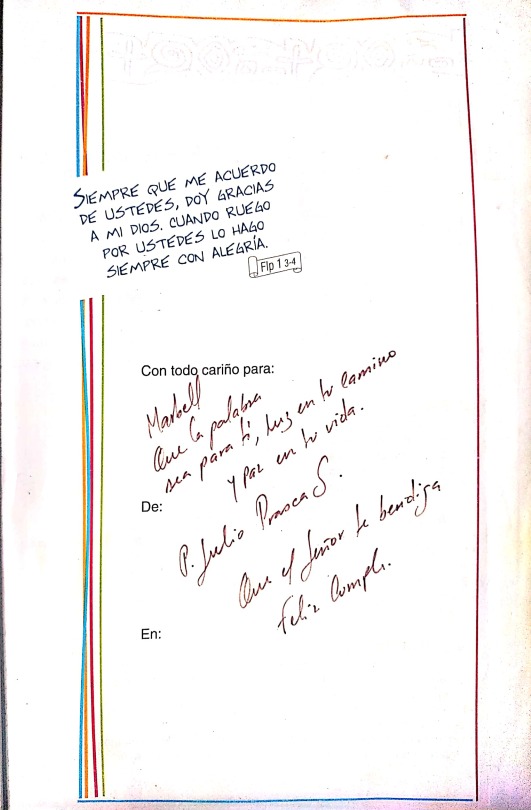 SIEMPRE QUE ME ACUERDO
DE USTEDES, DOY GRACIAS
A MI DIOS. CUANDO RUEGO
POR USTEDES LO HAGO
SIEMPRE CON ALEGRÍA.
Flp 1 3-4
Con todo cariño para:
Marbell
Que la palabra
sea para ti, luz en tu camino
y Paz en tu vida.
De:
P. Julio Prasca S.
Que el Señor te bendiga
Feliz Cumple.
En: